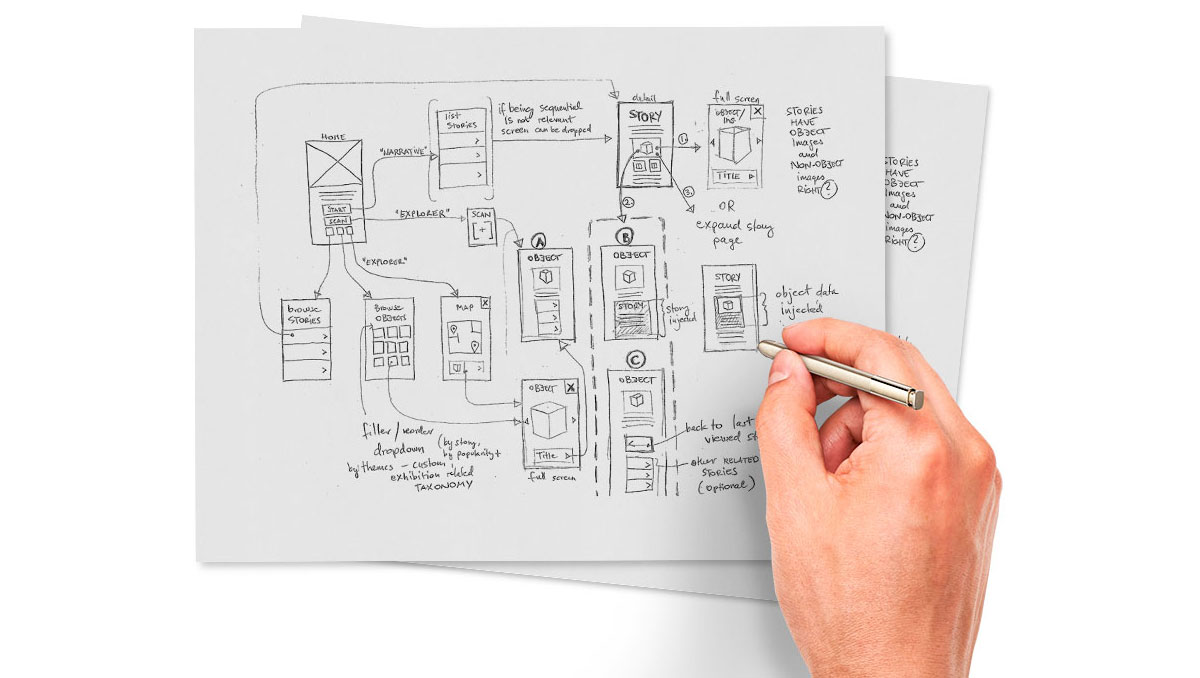 HOME
START
SCAN
"NARRATIVE"
list
STORIES
if being sequential
IS not relevant
screen can be dropped
detail
STORY
1.
2.
3.
full screen
OBJECT/
TITLE
STORIES
HAVE
OBJECT
Images
and
NON-OBJECT
images
RIGHT ?
OR
expand story
page
"EXPLORER"
SCAN
[+]
"EXPLORER"
browse
STORIES
Browse
OBJECTS
MAP
X
A
OBJECT
B
OBJECT
STORY
Story
injected
STORY
object data
injected
C
OBJECT
back to last
viewed
OTHER RELATED
STORIES
(optional)
OBJECT
X
Title
full screen
filter/reorder
dropdown
(by story,
by popularity +
by themes - custom,
exhibition related
TAXONOMY
STORIES
HAVE
OBJECT
images
and
NON-OBJECT
images
RIGHT ?